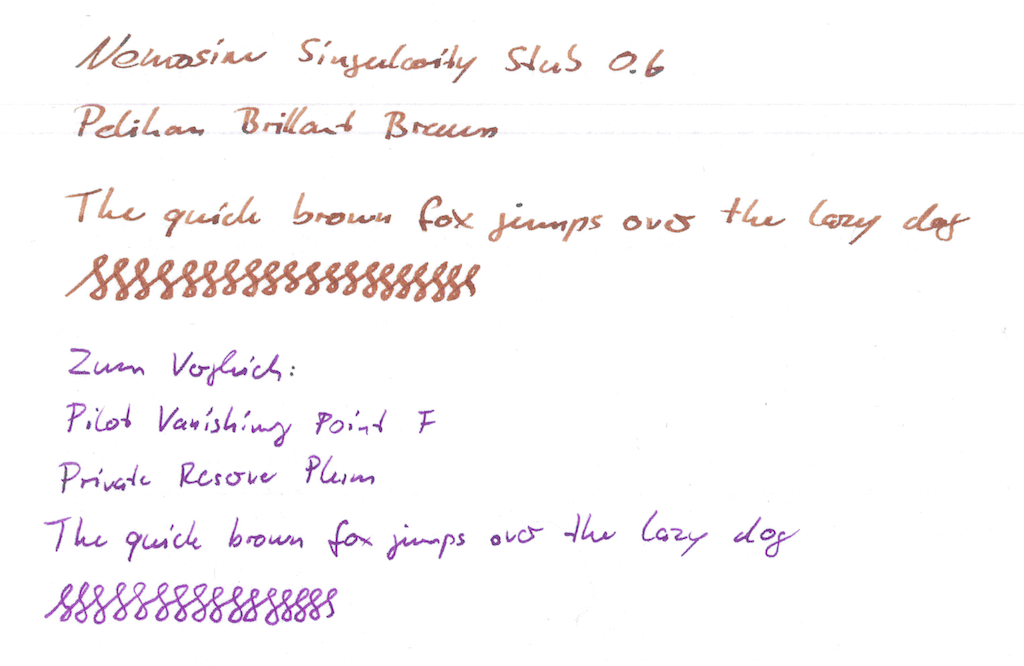 Nemosine Singularity Stub 0.6
Pelikan Brillant Braun
The quick brown fox jumps over the lazy dog
Zum Vergleich:
Pilot Vanishing Point F
Private Reserve Plum
The quick brown fox jumps over the lazy dog